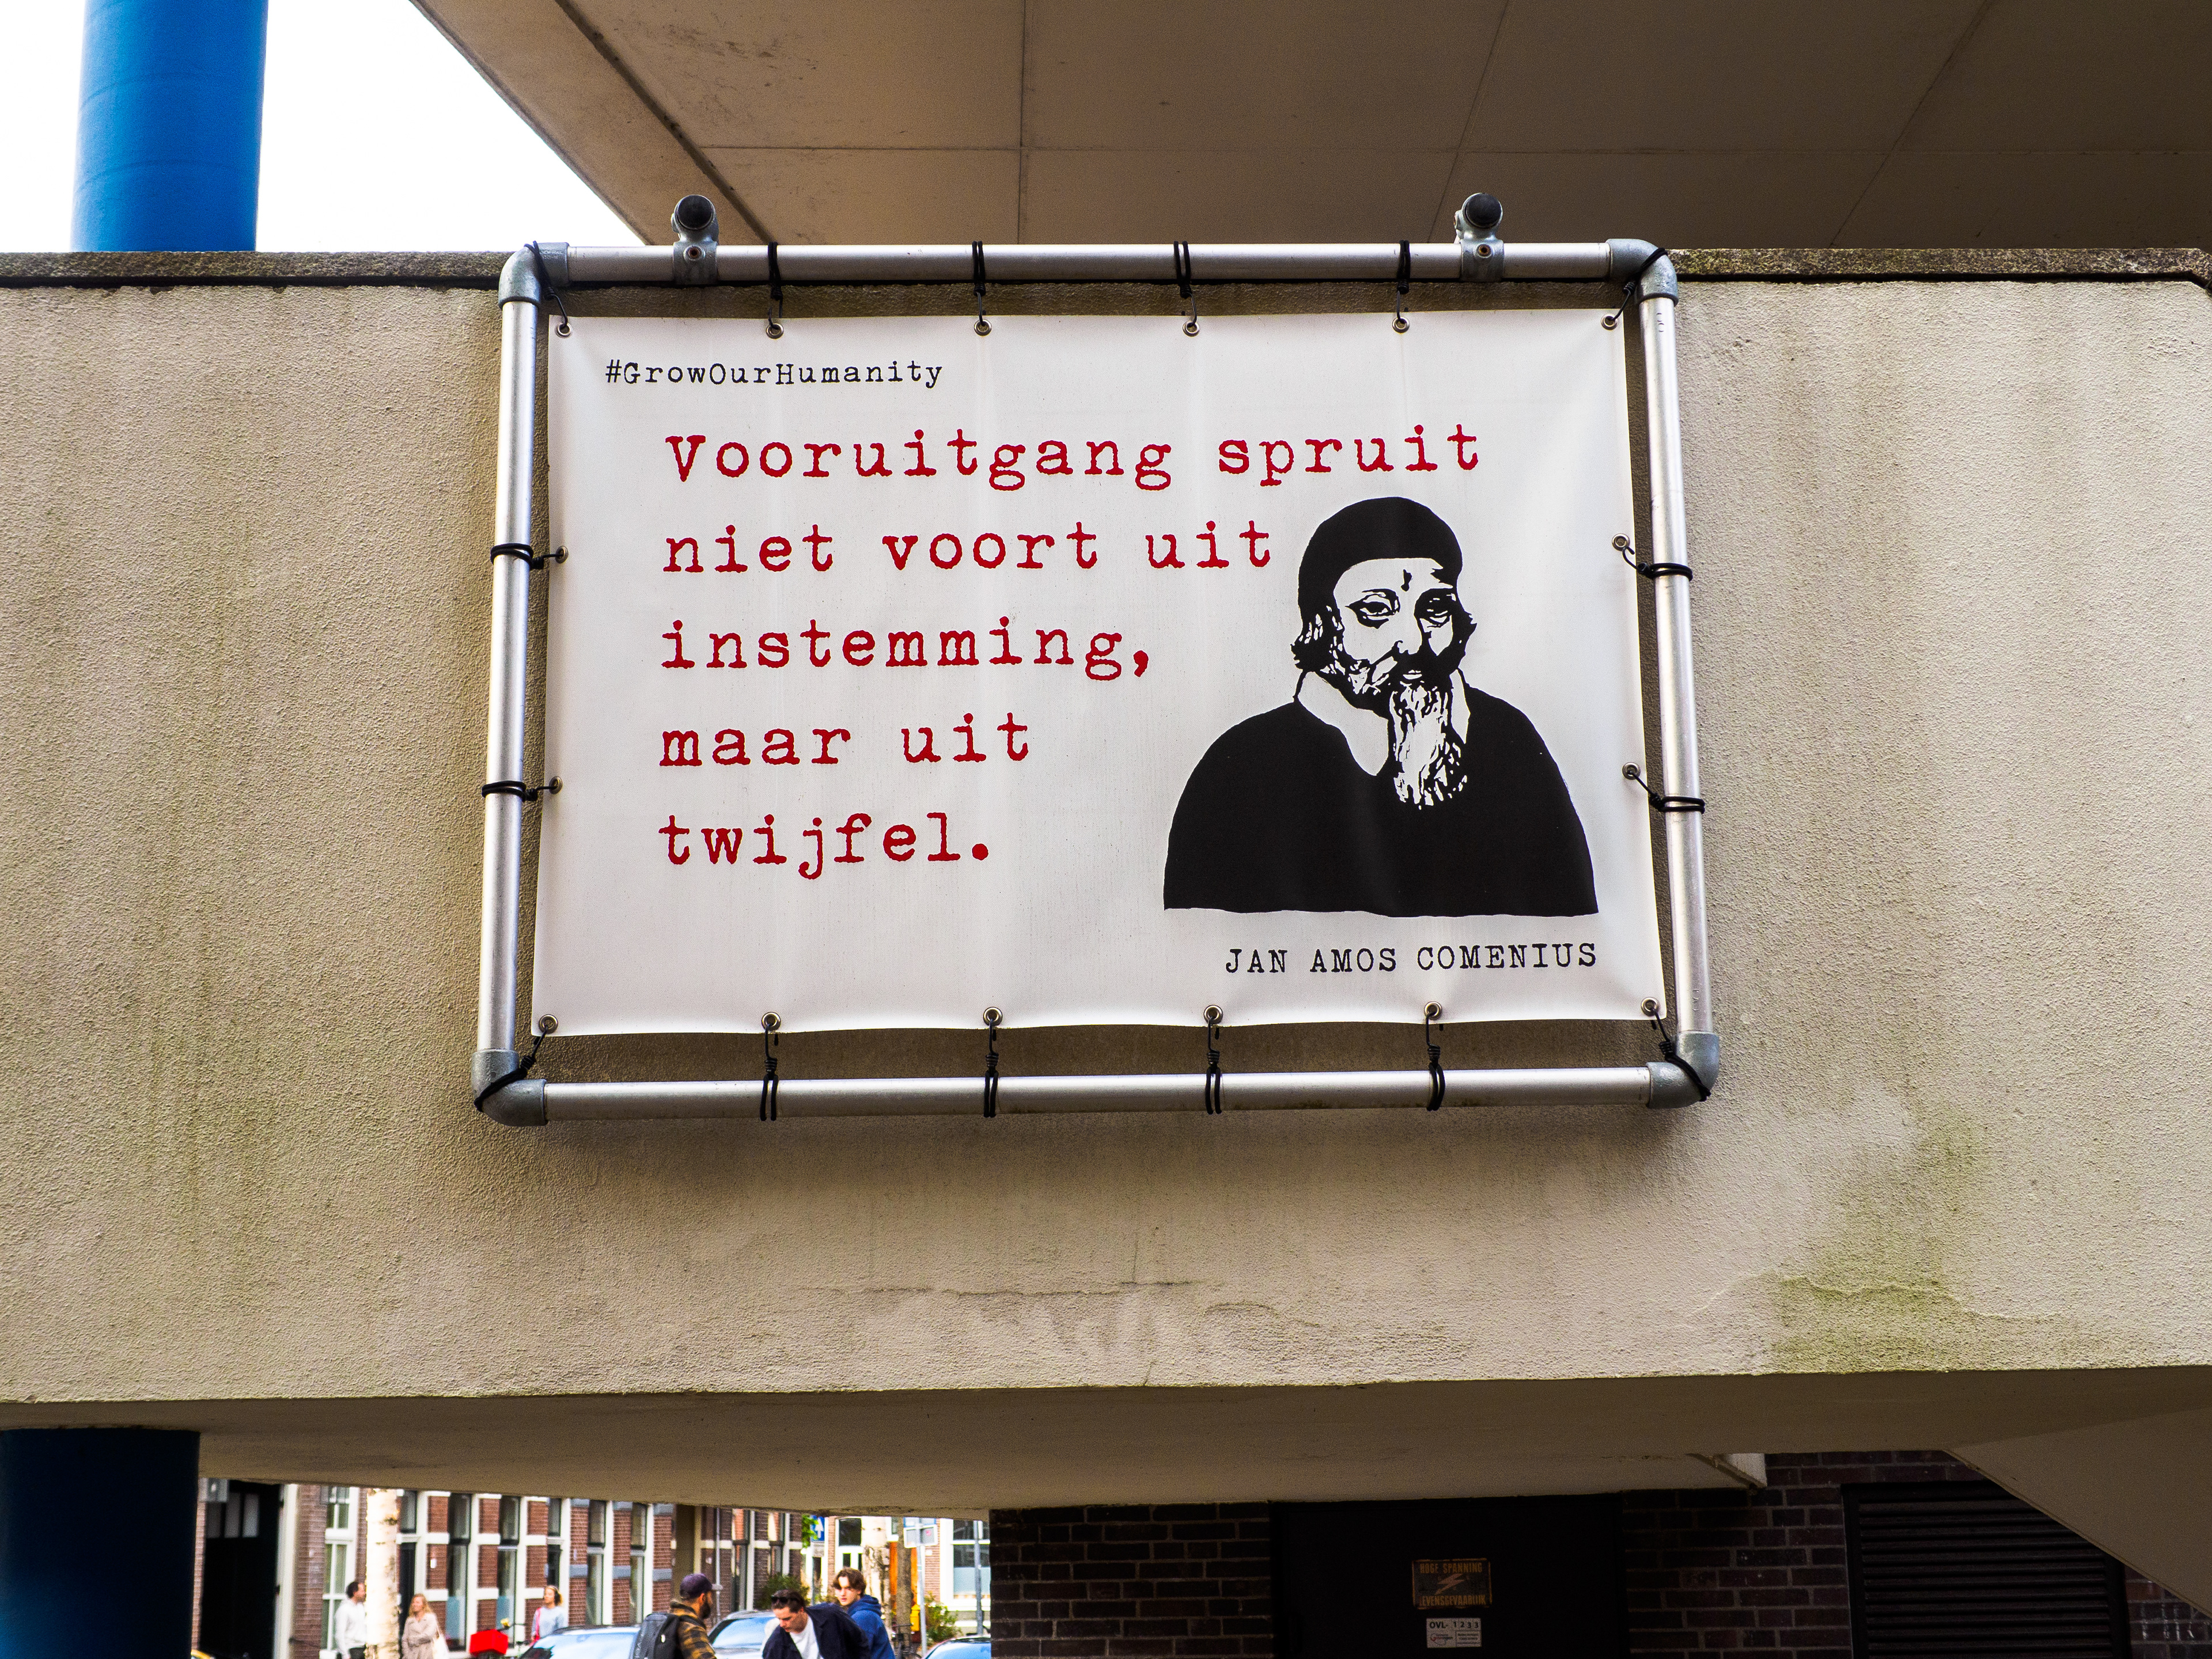 #GrowOurHumanity
Vooruitgang spruit
niet voort uit
instemming,
maar uit
twijfel.
JAN AMOS COMENIUS
HOGE SPANNING
LEVENSGEVAARLIJK